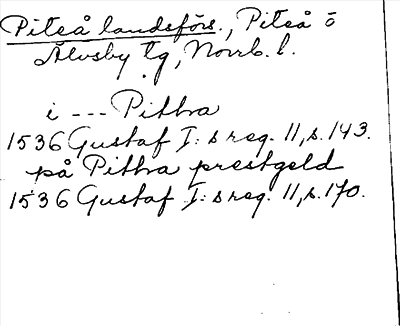 Piteå landsförs., Piteå o
Älvsby tg, Norrb. l.
i --- Pitha
1536 Gustaf I:s reg. 11, s. 143.
på Pitha prestgeld
1536 Gustaf I:s reg. 11, s. 170.